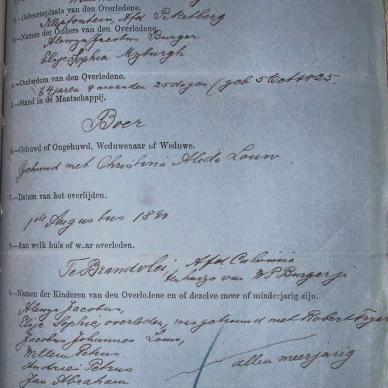 2.—Geboorteplaats van den Overledene.
Klipfontein, Afd Piketberg
3.—Namen der Ouders van den Overledene.
Alewyn Jacobus Burger
Elsje Sophia Myburgh
4.—Ouderdom van den Overledene.
64 jaren 9 maanden 25 dagen / geb 5 Oct 1825
5.—Stand in de Maatschappij.
Boer
6.—Gehuwd of Ongehuwd, Weduwenaar of Weduwe.
Gehuwd met Christina Aleda Louw
7.—Datum van het overlijden.
1ste Augustus 1890
8.—Aan welk huis of waar overleden.
Te Brandvlei, Afd Calvinia
ten huize van W P Burger
9.—Namen der Kinderen van den Overledene en of dezelve meer of minderjarig zijn.
Alewyn Jacobus,
Elsje Sophia, overleden, was getrouwd met Robert
Jacobus Johannes Louw,
Willem Petrus
Andries Petrus
Jan Abraham
allen meerjarig